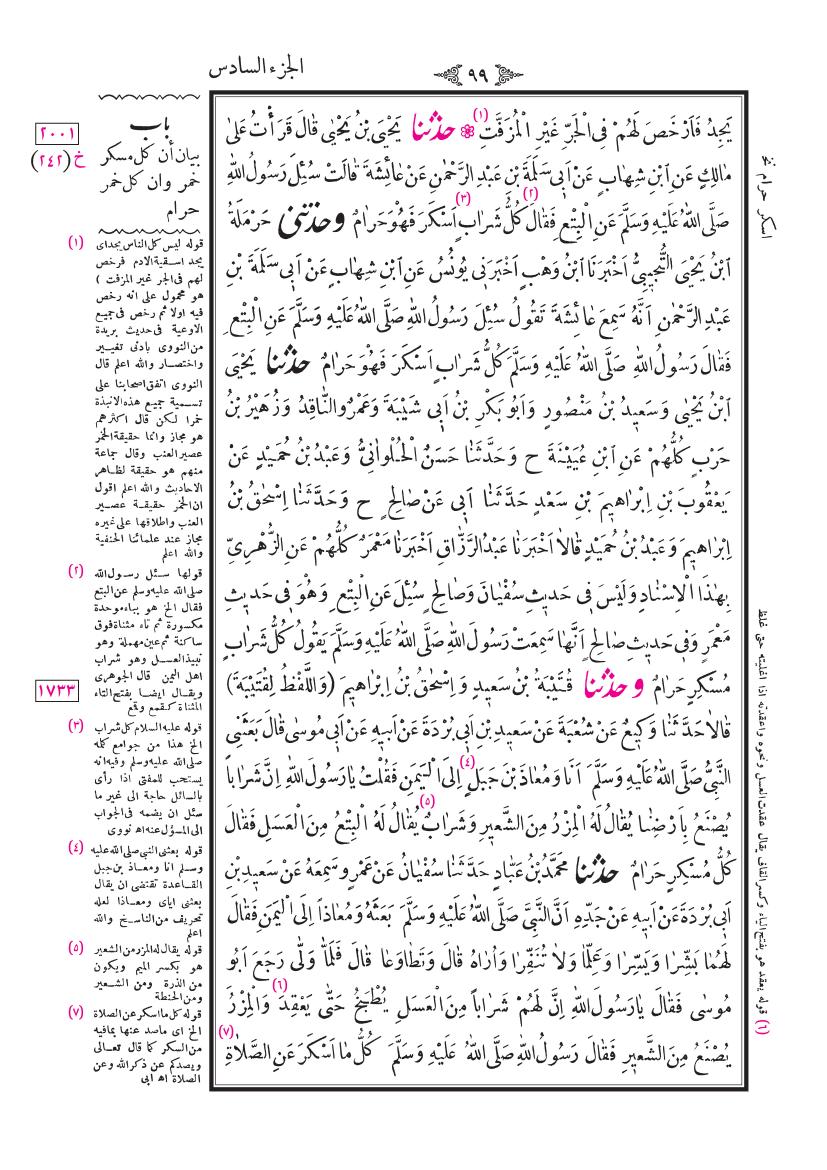 الجزء السادس
٩٩
يَجِدُ فَأَرْخَصَ لَهُمْ فِى الْجَرِّ غَيْرِ الْمُزَفَّتِ (١) ۞ حدثنا يَحْيَى بْنُ يَحْيٰى قَالَ قَرَأْتُ عَلٰى
مَالِكٍ عَنِ ابْنِ شِهَابٍ عَنْ اَبِى سَلَمَةَ بْنِ عَبْدِ الرَّحْمٰنِ عَنْ عَائِشَةَ قَالَتْ سُئِلَ رَسُولُ اللهِ
صَلَّى اللهُ عَلَيْهِ وَسَلَّمَ عَنِ الْبِتْعِ (٢) فَقَالَ كُلُّ شَرَابٍ (٣) اَسْكَرَ فَهُوَ حَرَامٌ وحدثنى حَرْمَلَةُ
ابْنُ يَحْيَى التُّجِيبِىُّ اَخْبَرَنَا ابْنُ وَهْبٍ اَخْبَرَنِى يُونُسُ عَنِ ابْنِ شِهَابٍ عَنْ اَبِى سَلَمَةَ بْنِ
عَبْدِ الرَّحْمٰنِ اَنَّهُ سَمِعَ عَائِشَةَ تَقُولُ سُئِلَ رَسُولُ اللهِ صَلَّى اللهُ عَلَيْهِ وَسَلَّمَ عَنِ الْبِتْعِ
فَقَالَ رَسُولُ اللهِ صَلَّى اللهُ عَلَيْهِ وَسَلَّمَ كُلُّ شَرَابٍ اَسْكَرَ فَهُوَ حَرَامٌ حدثنا يَحْيَى
ابْنُ يَحْيٰى وَسَعِيدُ بْنُ مَنْصُورٍ وَاَبُو بَكْرِ بْنُ اَبِى شَيْبَةَ وَعَمْرٌو النَّاقِدُ وَزُهَيْرُ بْنُ
حَرْبٍ كُلُّهُمْ عَنِ ابْنِ عُيَيْنَةَ ح وَحَدَّثَنَا حَسَنٌ الْحُلْوَانِىُّ وَعَبْدُ بْنُ حُمَيْدٍ عَنْ
يَعْقُوبَ بْنِ اِبْرَاهِيمَ بْنِ سَعْدٍ حَدَّثَنَا اَبِى عَنْ صَالِحٍ ح وَحَدَّثَنَا اِسْحٰقُ بْنُ
اِبْرَاهِيمَ وَعَبْدُ بْنُ حُمَيْدٍ قَالَا اَخْبَرَنَا عَبْدُ الرَّزَّاقِ اَخْبَرَنَا مَعْمَرٌ كُلُّهُمْ عَنِ الزُّهْرِىِّ
بِهٰذَا الْاِسْنَادِ وَلَيْسَ فِى حَدِيثِ سُفْيَانَ وَصَالِحٍ سُئِلَ عَنِ الْبِتْعِ وَهُوَ فِى حَدِيثِ
مَعْمَرٍ وَفِى حَدِيثِ صَالِحٍ اَنَّهَا سَمِعَتْ رَسُولَ اللهِ صَلَّى اللهُ عَلَيْهِ وَسَلَّمَ يَقُولُ كُلُّ شَرَابٍ
مُسْكِرٍ حَرَامٌ وحدثنا قُتَيْبَةُ بْنُ سَعِيدٍ وَاِسْحٰقُ بْنُ اِبْرَاهِيمَ (وَاللَّفْظُ لِقُتَيْبَةَ)
قَالَا حَدَّثَنَا وَكِيعٌ عَنْ شُعْبَةَ عَنْ سَعِيدِ بْنِ اَبِى بُرْدَةَ عَنْ اَبِيهِ عَنْ اَبِى مُوسٰى قَالَ بَعَثَنِى
النَّبِىُّ صَلَّى اللهُ عَلَيْهِ وَسَلَّمَ اَنَا وَمُعَاذَ بْنَ جَبَلٍ (٤) اِلَى الْيَمَنِ فَقُلْتُ يَا رَسُولَ اللهِ اِنَّ شَرَاباً
يُصْنَعُ بِاَرْضِنَا يُقَالُ لَهُ الْمِزْرُ مِنَ الشَّعِيرِ وَشَرَابٌ (٥) يُقَالُ لَهُ الْبِتْعُ مِنَ الْعَسَلِ فَقَالَ
كُلُّ مُسْكِرٍ حَرَامٌ حدثنا مُحَمَّدُ بْنُ عَبَّادٍ حَدَّثَنَا سُفْيَانُ عَنْ عَمْرٍو سَمِعَهُ عَنْ سَعِيدِ بْنِ
اَبِى بُرْدَةَ عَنْ اَبِيهِ عَنْ جَدِّهِ اَنَّ النَّبِىَّ صَلَّى اللهُ عَلَيْهِ وَسَلَّمَ بَعَثَهُ وَمُعَاذاً اِلَى الْيَمَنِ فَقَالَ
لَهُمَا بَشِّرَا وَيَسِّرَا وَعَلِّمَا وَلَا تُنَفِّرَا وَاُرَاهُ قَالَ وَتَطَاوَعَا قَالَ فَلَمَّا وَلّٰى رَجَعَ اَبُو
مُوسٰى فَقَالَ يَا رَسُولَ اللهِ اِنَّ لَهُمْ شَرَاباً مِنَ الْعَسَلِ يُطْبَخُ حَتّٰى يَعْقِدَ (٦) وَالْمِزْرُ
يُصْنَعُ مِنَ الشَّعِيرِ فَقَالَ رَسُولُ اللهِ صَلَّى اللهُ عَلَيْهِ وَسَلَّمَ كُلُّ مَا اَسْكَرَ عَنِ الصَّلَاةِ (٧)
اسكر حرام نخ
(٦) قوله يعقد هو بفتح الياء وكسر القاف يقال عقدت العسل ونحوه واعقدته اذا اغليته حتى غلظ
باب
بيان أن كل مسكر
خمر وان كل خمر
حرام
٢٠٠١
خ (٢٤٢)
(١) قوله ليس كل الناس يجد اى
يجد اسقية الادم فرخص
لهم فى الجر غير المزفت )
هو محمول على انه رخص
فيه اولا ثم رخص فى جميع
الاوعية فى حديث بريدة
من النووى بادنى تغيير
واختصار والله اعلم قال
النووى اتفق اصحابنا على
تسمية جميع هذه الانبذة
خمرا لكن قال اكثرهم
هو مجاز وانما حقيقة الخمر
عصير العنب وقال جماعة
منهم هو حقيقة لظاهر
الاحاديث والله اعلم اقول
ان الخمر حقيقة عصير
العنب واطلاقها على غيره
مجاز عند علمائنا الحنفية
والله اعلم
(٢) قولها سئل رسول الله
صلى الله عليه وسلم عن البتع
فقال الخ هو بباء موحدة
مكسورة ثم تاء مثناة فوق
ساكنة ثم عين مهملة وهو
نبيذ العسل وهو شراب
اهل اليمن قال الجوهرى
ويقال ايضا بفتح التاء
المثناة كقمع وقمع
١٧٣٣
(٣) قوله عليه السلام كل شراب
الخ هذا من جوامع كلمه
صلى الله عليه وسلم وفيه انه
يستحب للمفتى اذا رأى
بالسائل حاجة الى غير ما
سئل ان يضمه فى الجواب
الى المسؤل عنه اه نووى
(٤) قوله بعثنى النبى صلى الله عليه
وسلم انا ومعاذ بن جبل
القاعدة تقتضى ان يقال
بعثنى اياى ومعاذا لعله
تحريف من الناسخ والله
اعلم
(٥) قوله يقال له المزر من الشعير
هو بكسر الميم ويكون
من الذرة ومن الشعير
ومن الحنطة
(٧) قوله كل ما اسكر عن الصلاة
الخ اى ما صد عنها بما فيه
من السكر كما قال تعالى
ويصدكم عن ذكر الله وعن
الصلاة اه ابى